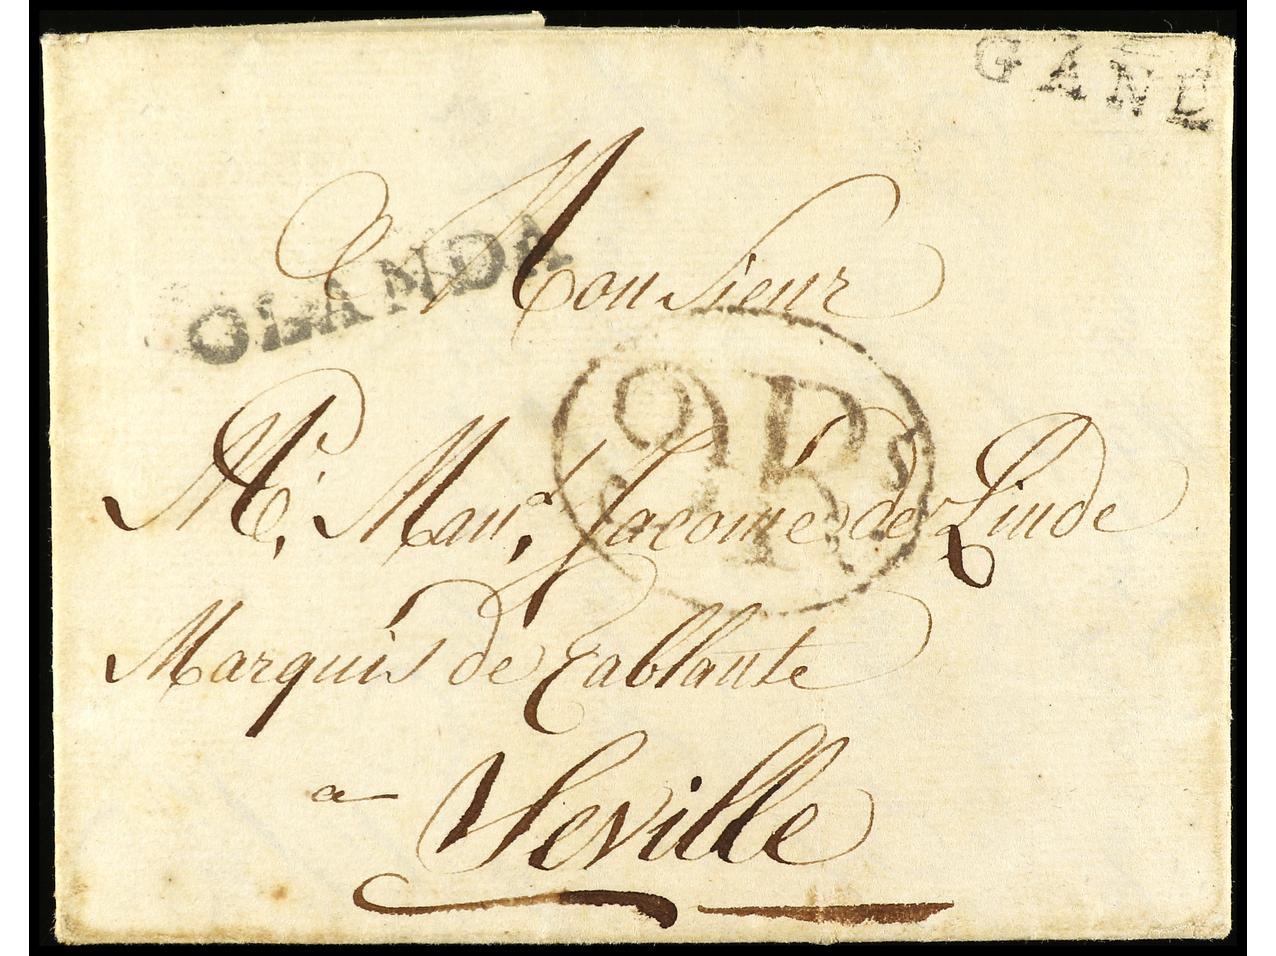 GAND
OLANDA
Monsieur
9Rs
Mr. Man. Jacome de Linde
Marquis de Tablante
a Seville